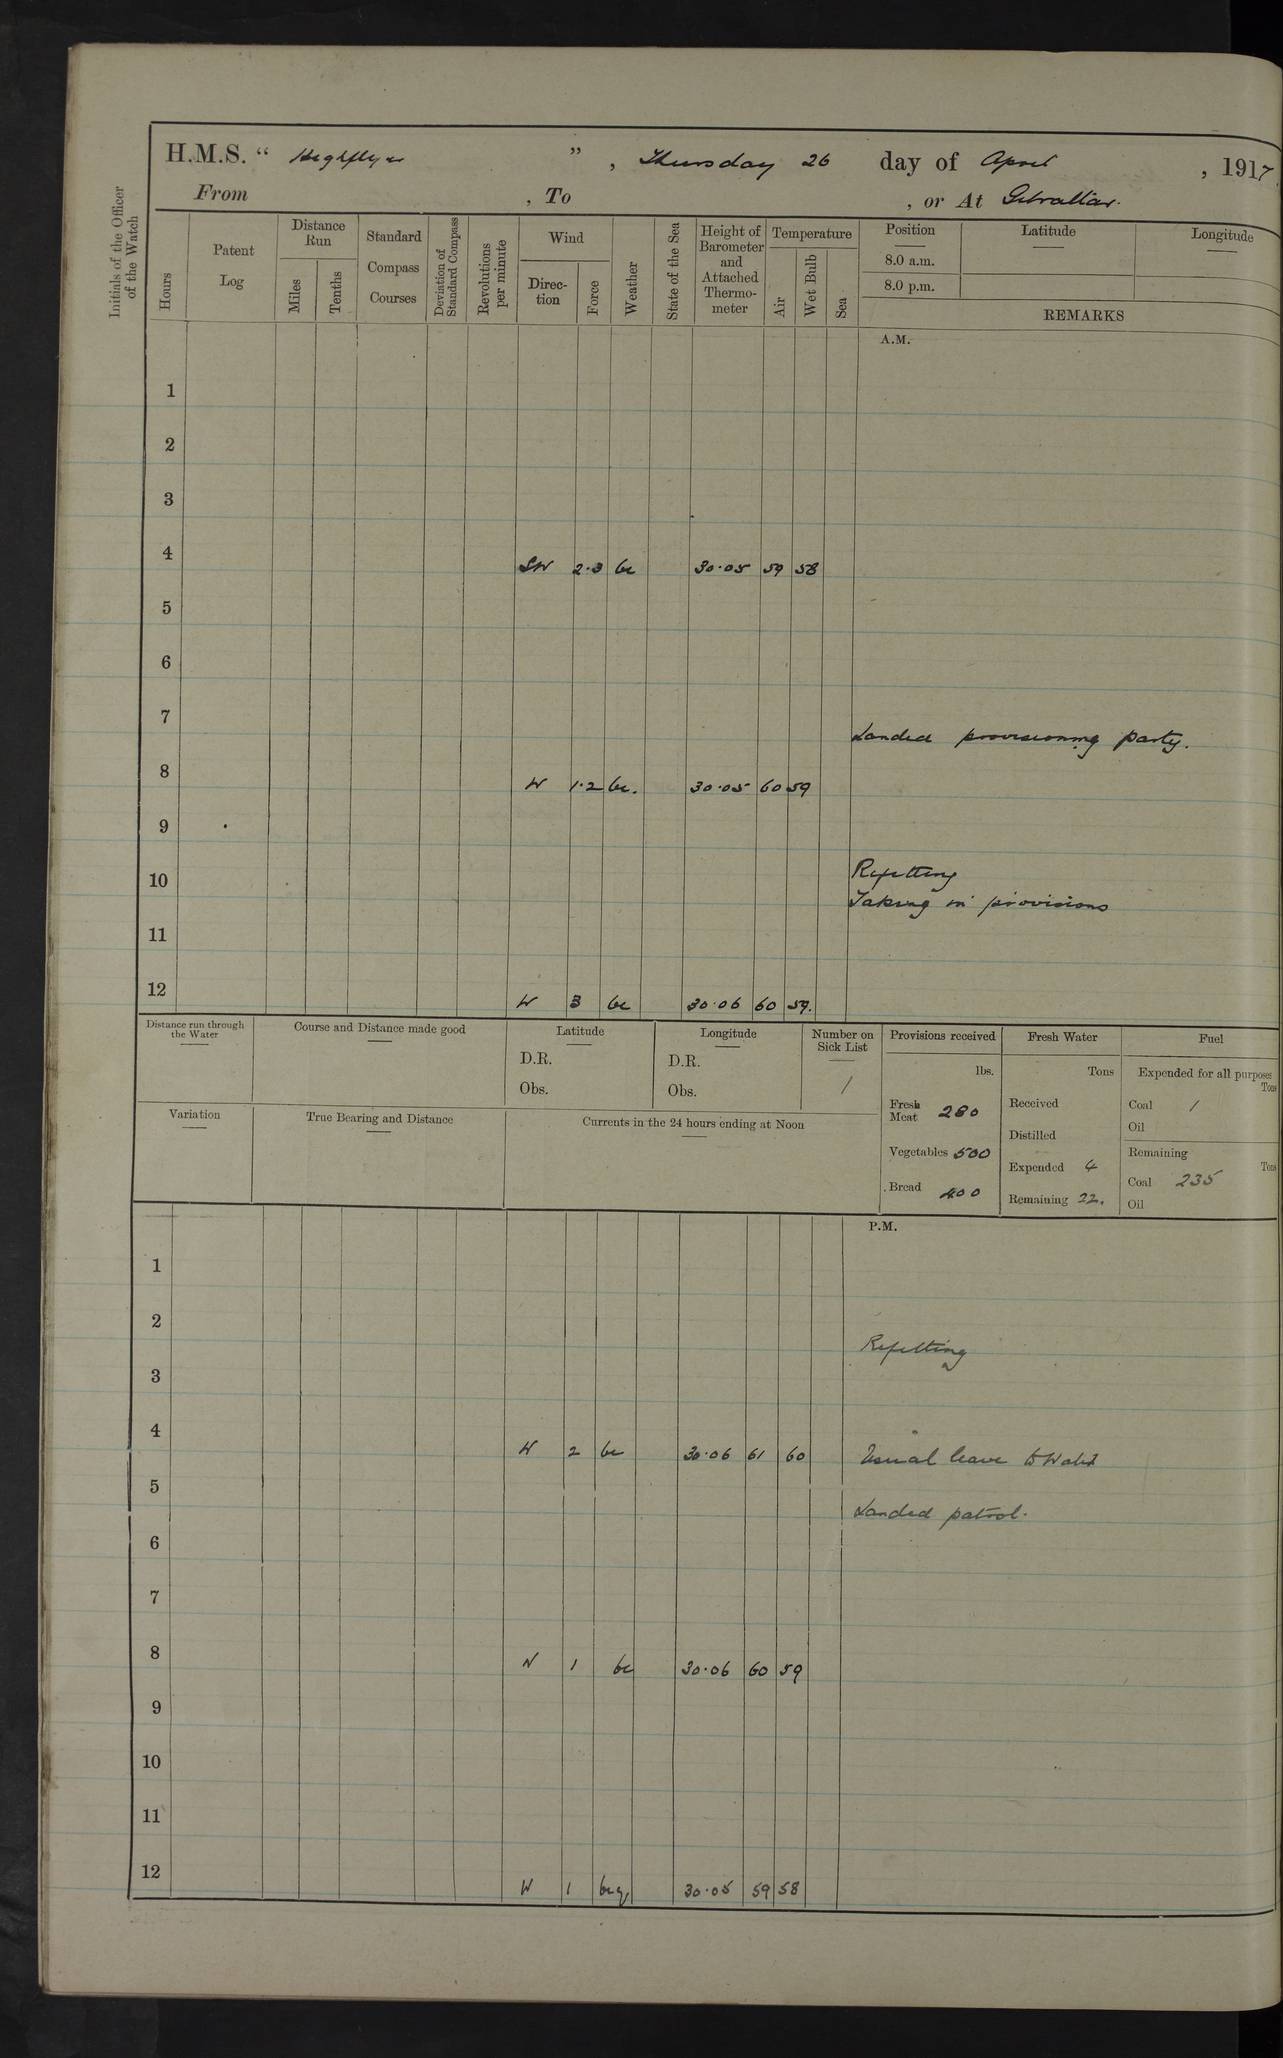 H.M.S. " Highflyer " , Thursday 26 day of April , 1917
From , To , or At Gibraltar.
Initials of the Officer of the Watch
Hours
Patent Log
Distance Run
Miles
Tenths
Standard Compass Courses
Deviation of Standard Compass
Revolutions per minute
Wind
Direc-tion
Force
Weather
State of the Sea
Height of Barometer and Attached Thermo-meter
Temperature
Air
Wet Bulb
Sea
Position
8.0 a.m.
8.0 p.m.
Latitude
Longitude
REMARKS
A.M.
1
2
3
4 SW 2.3 bc 30.05 59 58
5
6
7
Landed provisioning party.
8 W 1.2 bc. 30.05 60 59
9
10 Refitting
Taking in provisions
11
12 W 3 bc 30.06 60 59.
Distance run through the Water
Course and Distance made good
Latitude
D.R.
Obs.
Longitude
D.R.
Obs.
Number on Sick List
1
Variation
True Bearing and Distance
Currents in the 24 hours ending at Noon
Provisions received
lbs.
Fresh Meat 280
Vegetables 500
Bread 400
Fresh Water
Tons
Received
Distilled
Expended 4
Remaining 22.
Fuel
Expended for all purposes
Tons
Coal 1
Oil
Remaining
Tons
Coal 235
Oil
P.M.
1
2
Refitting
3
4 W 2 bc 30.06 61 60 Usual leave to Watch
5
Landed patrol.
6
7
8 W 1 bc 30.06 60 59
9
10
11
12 W 1 30.05 59 58